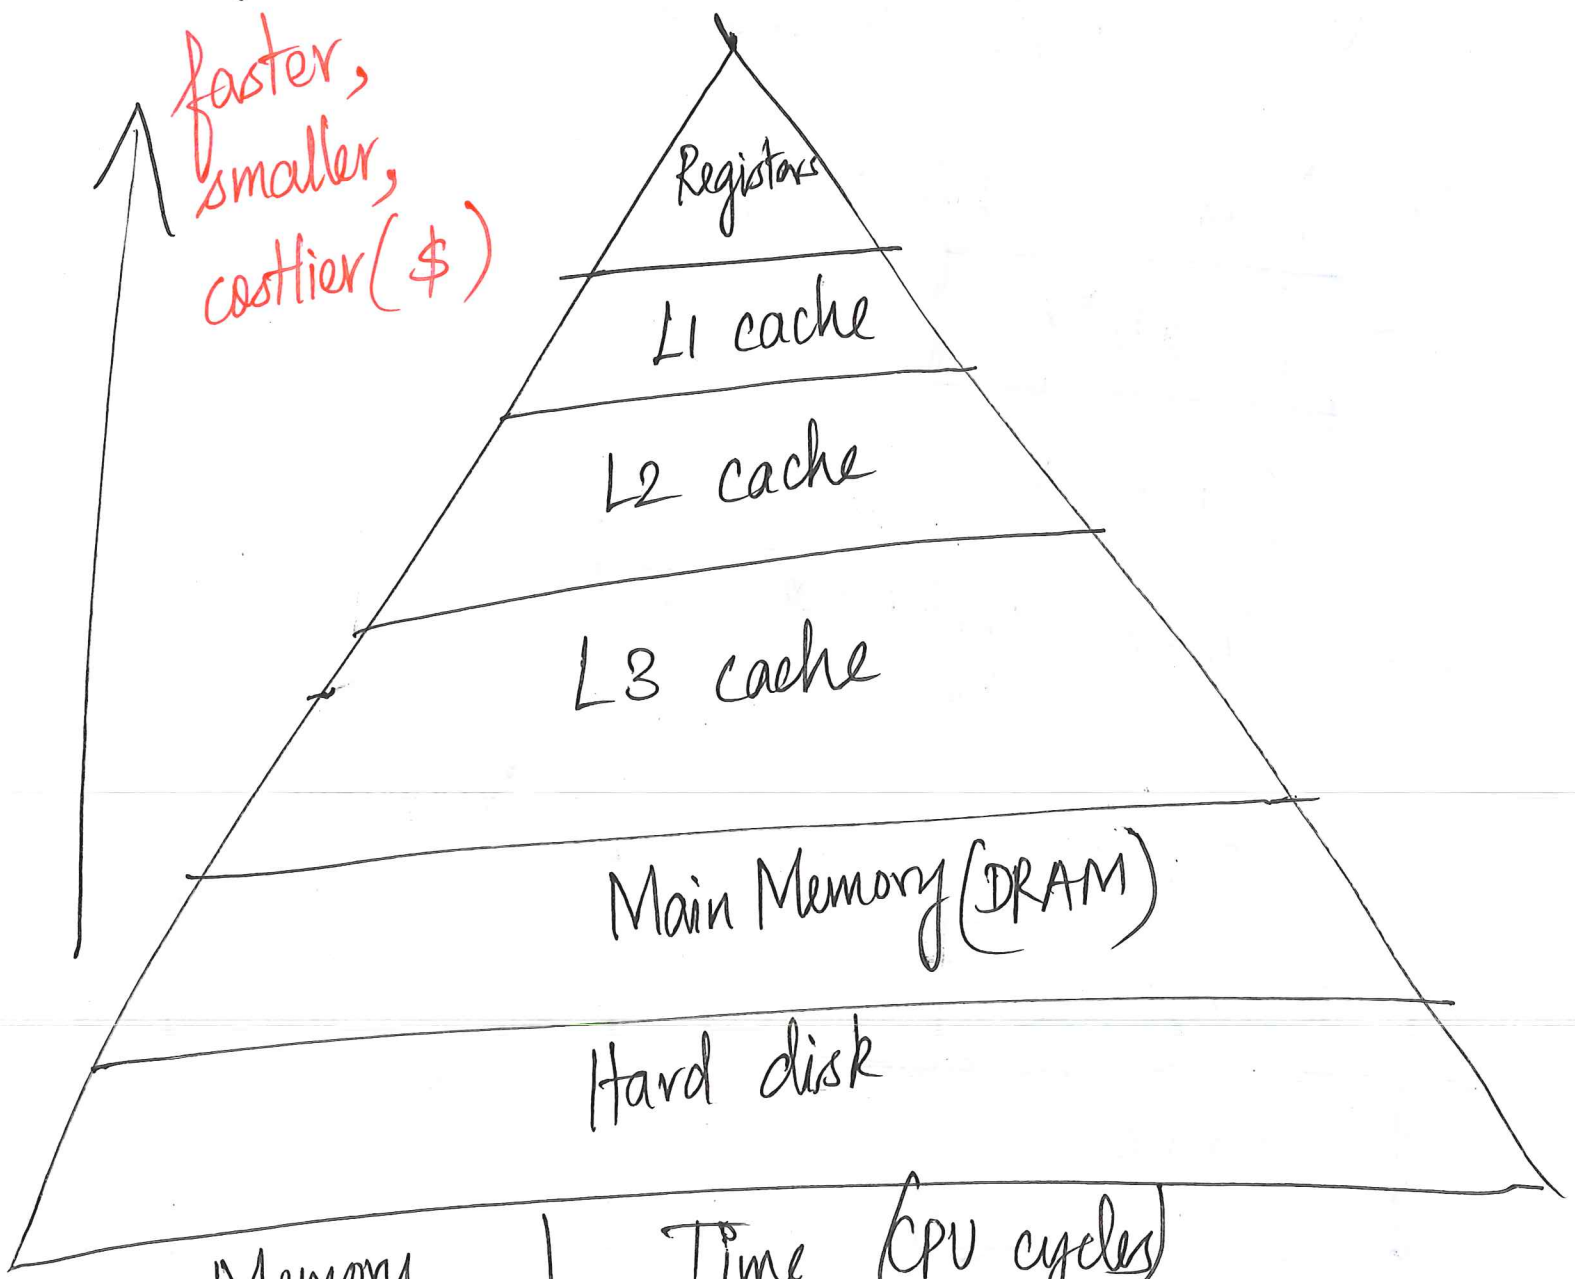 faster,
smaller,
costlier($)
Registers
L1 cache
L2 cache
L3 cache
Main Memory (DRAM)
Hard disk
Memory | Time (CPU cycles)